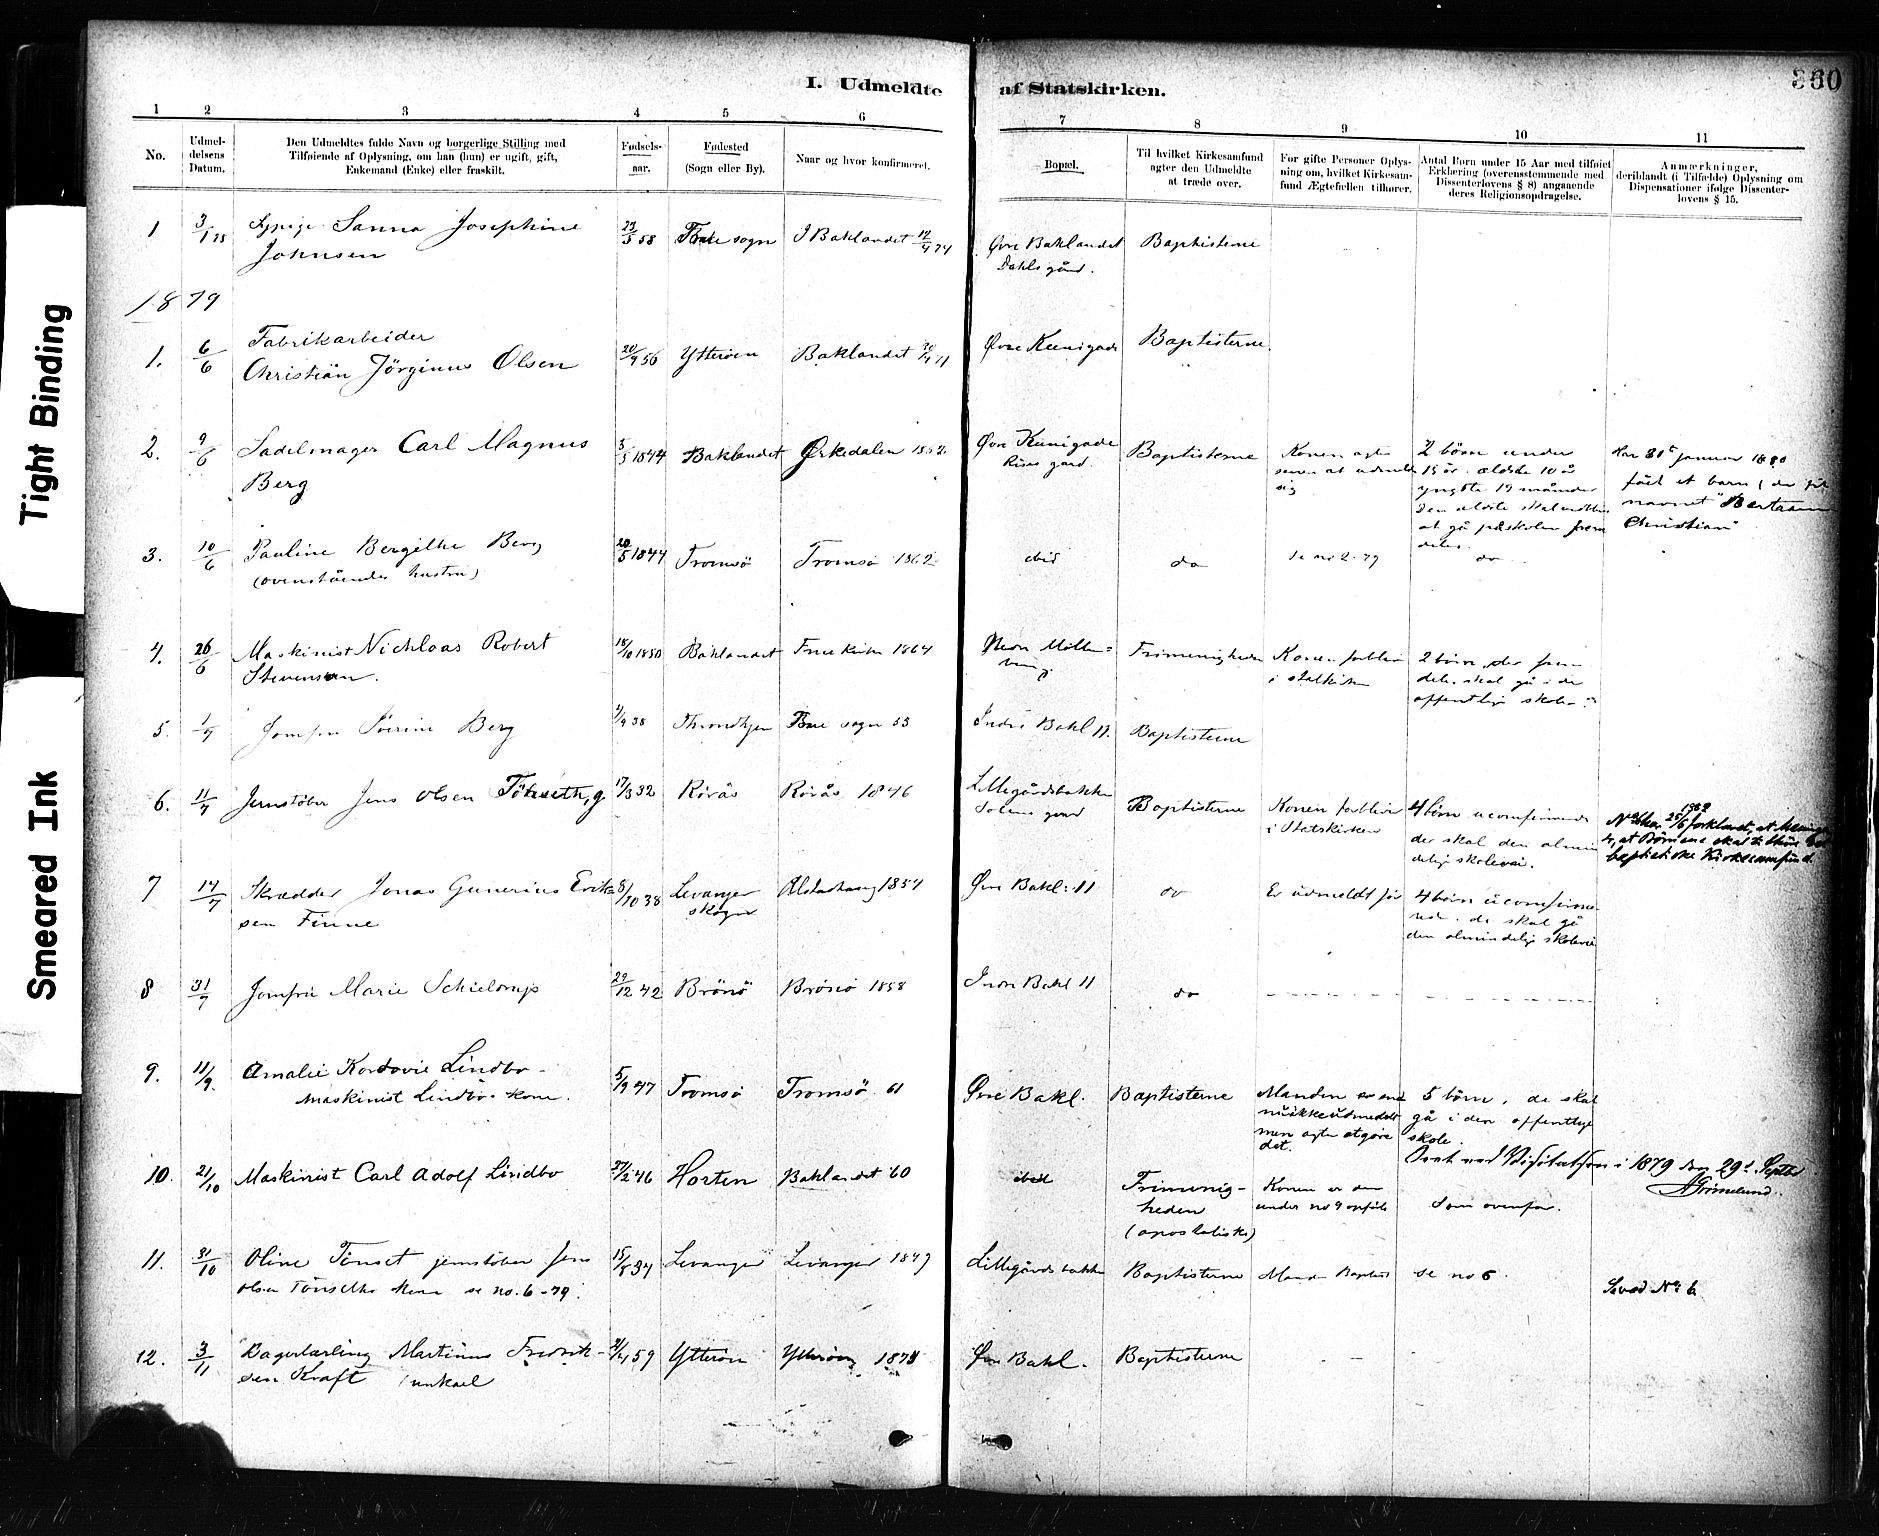 Tight Binding
Smeared Ink
I. Udmeldte af Statskirken.
360
1 2 3 4 5 6 7 8 9 10 11
No.
Udmel-
delsens
Datum.
Den Udmeldtes fulde Navn og borgerlige Stilling med
Tilføiende af Oplysning, om han (hun) er ugift, gift,
Enkemand (Enke) eller fraskilt.
Fødsels-
aar.
Fødested
(Sogn eller By).
Naar og hvor konfirmeret.
Bopæl.
Til hvilket Kirkesamfund
agter den Udmeldte
at træde over.
For gifte Personer Oplys-
ning om, hvilket Kirkesam-
fund Ægtefællen tilhører.
Antal Børn under 15 Aar med tilføiet
Erklæring (overensstemmende med
Dissenterlovens § 8) angaaende
deres Religionsopdragelse.
Anmærkninger,
deriblandt (i Tilfælde) Oplysning om
Dispensationer ifølge Dissenter-
lovens § 15.
1 3/1 78 Sanna Josephine 23/3 58 sogn I Baklandet 12/4 74 Øvre Baklandet Baptisterne
Johnsen Dahls gård.
1879
1. 6/6 Fabrikarbeider
Christian Jörginus Olsen 20/9 56 Ytterøen Baklandet 30/4 71 Øvre Baptisterne.
2. 9/6 Sadelmager Carl Magnus 3/5 1844 Baklandet Ørkedalen 1862 Øvre Baptisterne Konen agter 2 börn under Har 30e januar 1880
Berg gård. senere at udmelde 15 år. ældste 10 år født et barn (der fik
sig yngste 19 måneder navnet "Bertram
at gå på skolen frem Christian"
deles.
3. 10/6 Pauline Bergithe Berg 20/5 1844 Tromsö Tromsö 1862 ibid do se no 2-79 do
(ovenståendes hustru)
4. 26/6 Maskinist Nichloas Robert 18/10 1850 Baklandet Frue Kirke 1864 Nedre Möllen= Frimenigheden Konen forbliver 2 börn, der frem
Stevenson. i statkirken deles skal gå i de
offentlige skoler
5. 1/7 Jomfru Sörine Berg 4/9 38 Throndhjem sogn 53 Indre Bakl 11. Baptisterne
6. 11/7 Jernstöber Jens Olsen Tönseth, g. 17/3 32 Rörås Rörås 1846 Lillegårdsbakken Baptisterne Konen forbliver 4 börn uconfirmerede
gård i Statskirken der skal den almin
delige skolevei. baptistiske Kirkesamfund.
7 14/7 Skrædder Jonas Gunerius Erik 8/10 38 Levanger Alstadhaug 1854 Øvre Bakl: 11 do Er udmeldt för 4 börn uconfirme
sen Finne skogn rede. de skal gå
den almindelige skolevei
8 31/7 Jomfru Marie Schielderup 29/12 42 Brönö Brönö 1858 Indre Bakl 11 do
9. 11/9. Amalie Kordovie Lindbo - 5/9 47 Tromsö Tromsö 61 Øvre Bakl. Baptisterne Manden er end 5 börn, de skal
maskinist Lindbos kone. nu ikke udmeldt gå i den offentlige
men agter at göre skole.
det.
Seet ved Visitatsen i 1879 den 29de Septbr
Grimelund.
10. 21/10 Maskinist Carl Adolf Lindbo 27/2 46 Horten Baklandet 60 ibid Frimenig- Konen er den
heden under no 9 opförte Som ovenfor.
(apostoliske)
11. 31/10 Oline Tönset jernstöber Jens 15/8 34 Levanger Levanger 1849 Lillegårdsbakken Baptisterne Manden Baptist se no 6.
Olsen Tönseths kone se no. 6-79. No 6
12. 3/11 Bagerlærling Martinus Fredrik- 2/4 59 Ytterön Ytterön 1875 Øvre Bakl. Baptisterne
sen Kraft (unkael